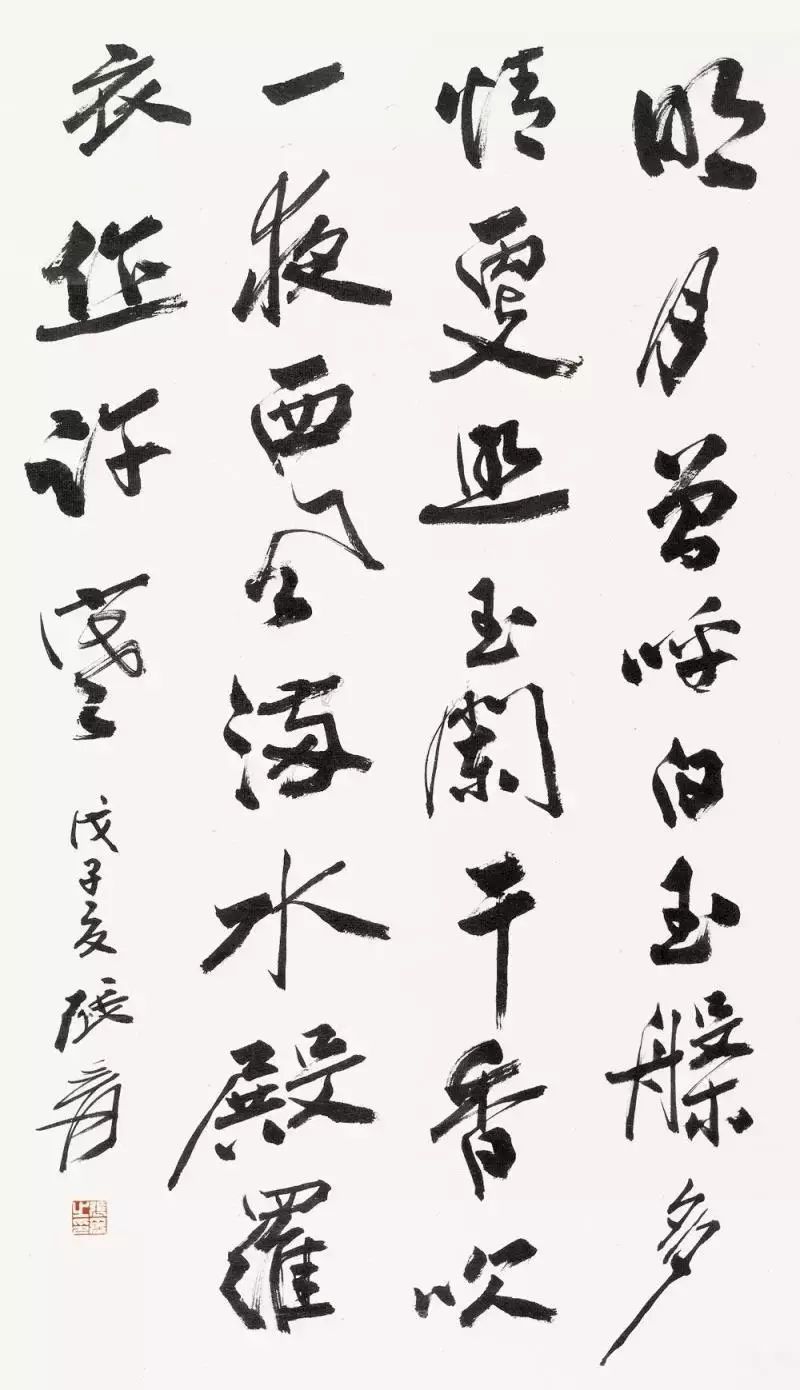 明月曾呼白玉槃多
情更照玉闌干香吹
一夜西風滿水殿羅
衣作許寒 戊子夏 張爰